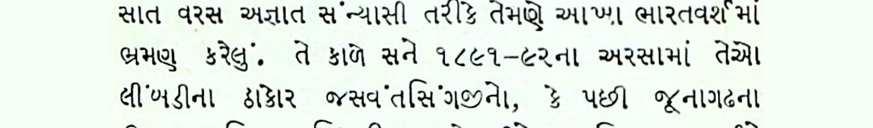 સાત વરસ અજ્ઞાત સંન્યાસી તરીકે તેમણે આખા ભારતવર્શમાં
ભ્રમણ કરેલું. તે કાળે સને ૧૮૯૧–૯૨ના અરસામાં તેઓ
લીંબડીના ઠાકોર જસવંતસિંગજીનો, કે પછી જૂનાગઢના